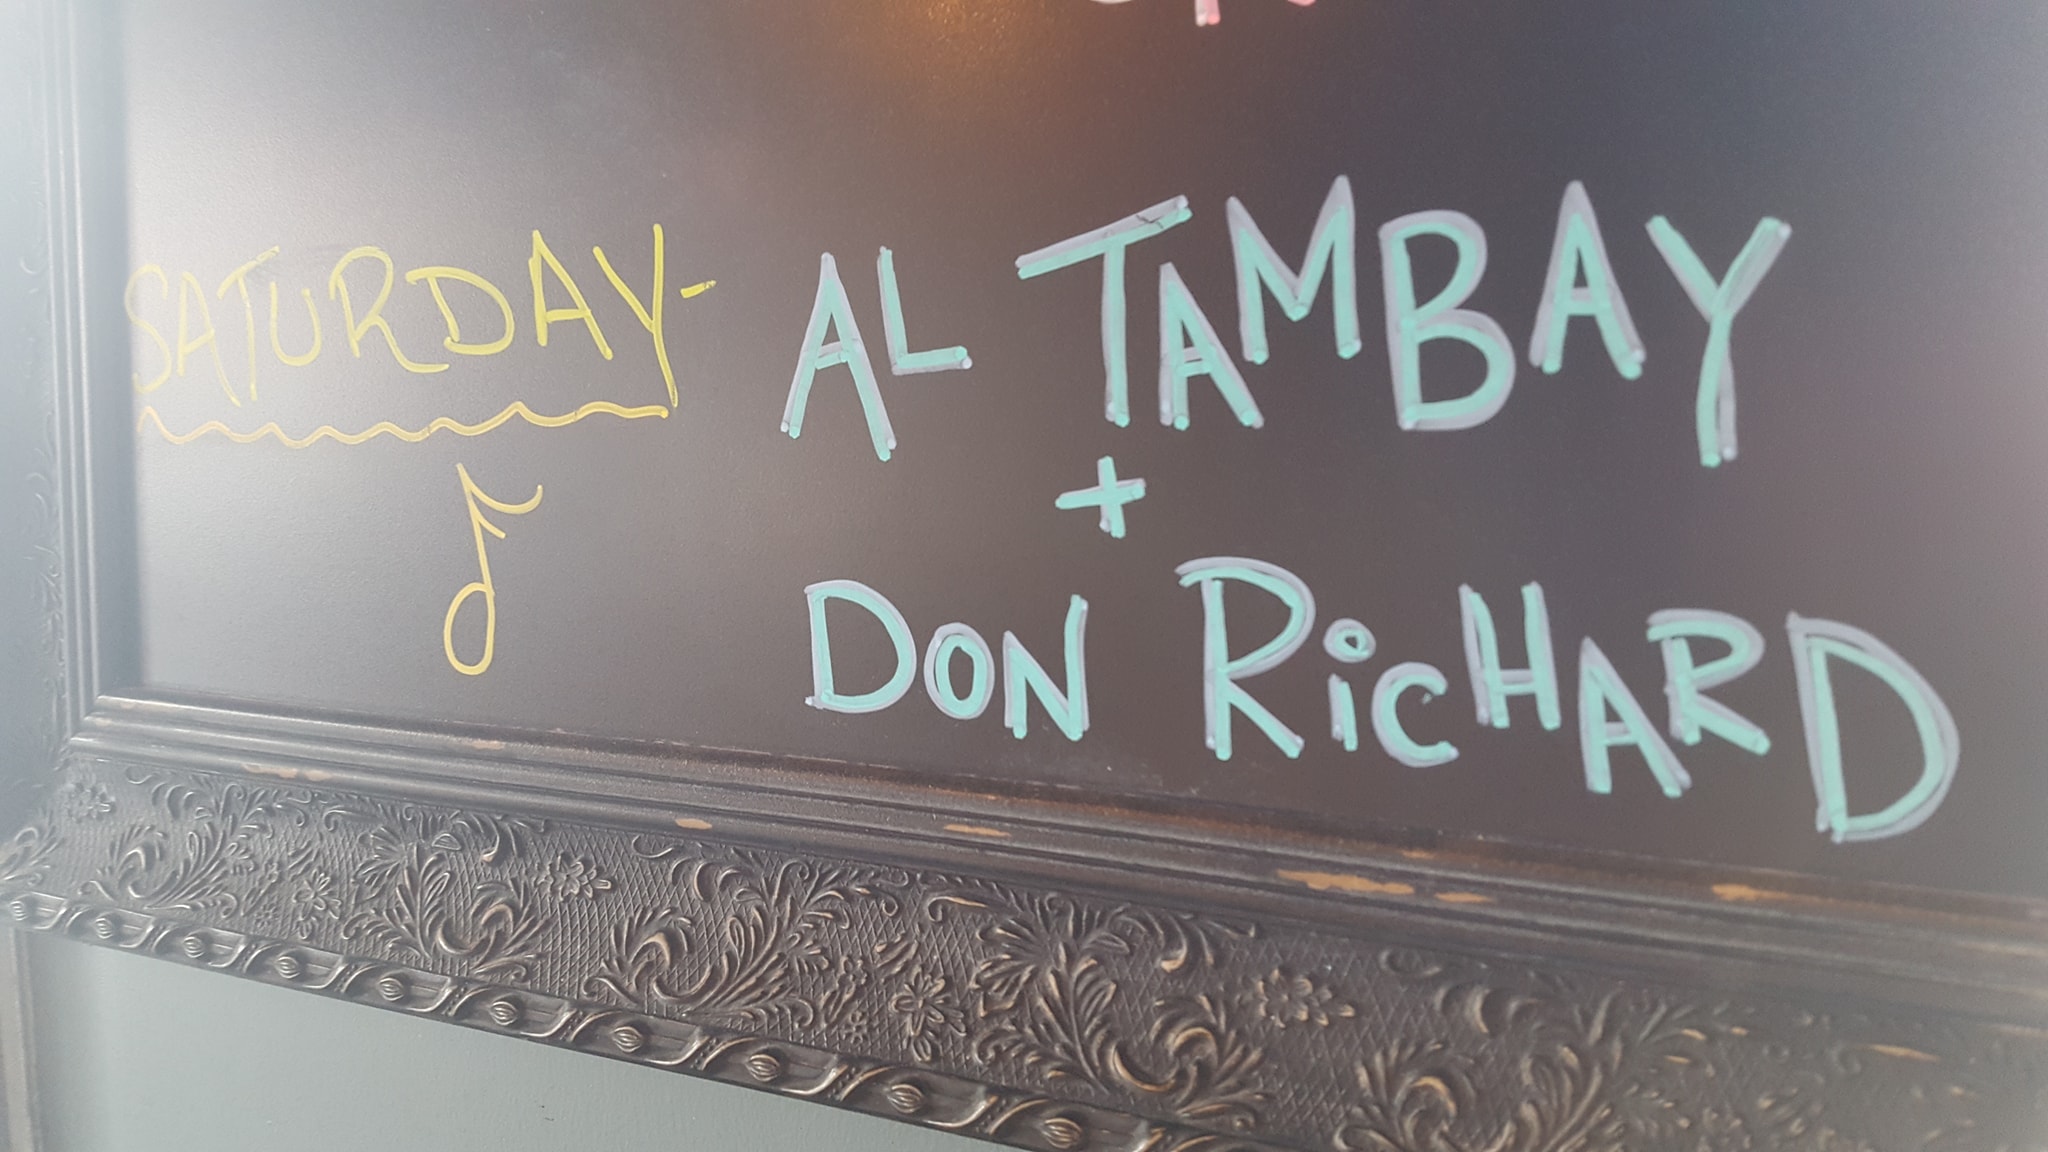 SATURDAY- AL TAMBAY
+
DON RiCHARD